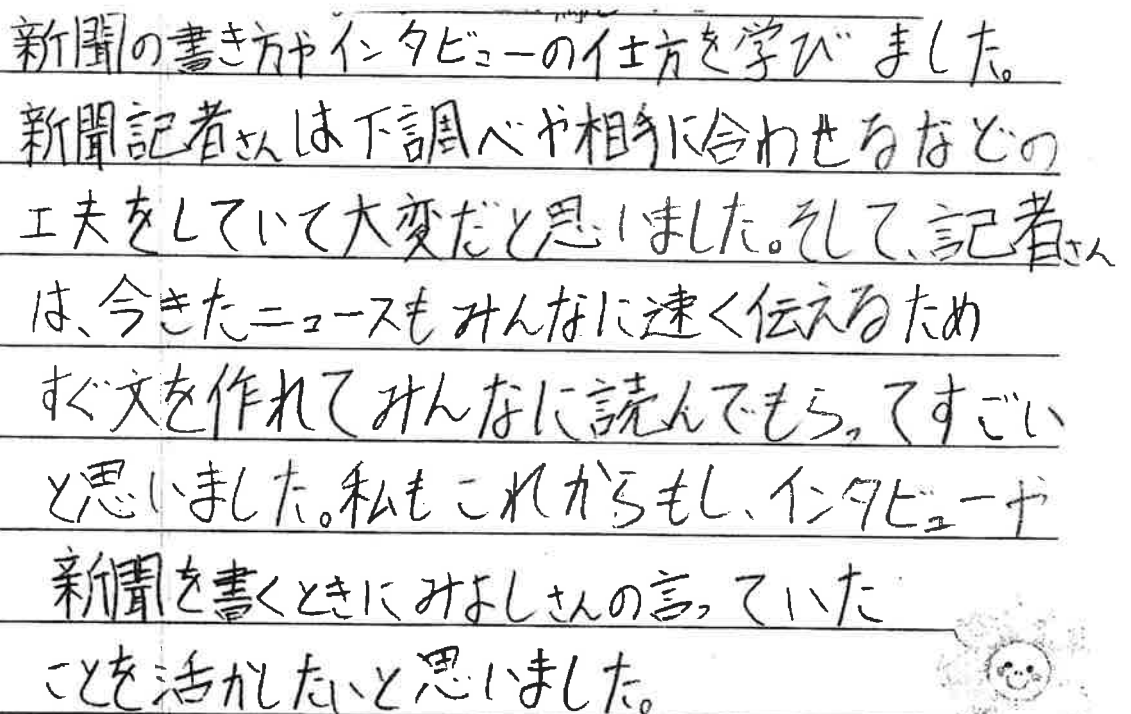 新聞の書き方やインタビューの仕方を学びました。
新聞記者さんは下調べや相手に合わせるなどの
工夫をしていて大変だと思いました。そして、記者さん
は、今きたニュースもみんなに速く伝えるため
すぐ文を作れてみんなに読んでもらってすごい
と思いました。私もこれからもし、インタビューや
新聞を書くときにみよしさんの言っていた
ことを活かしたいと思いました。